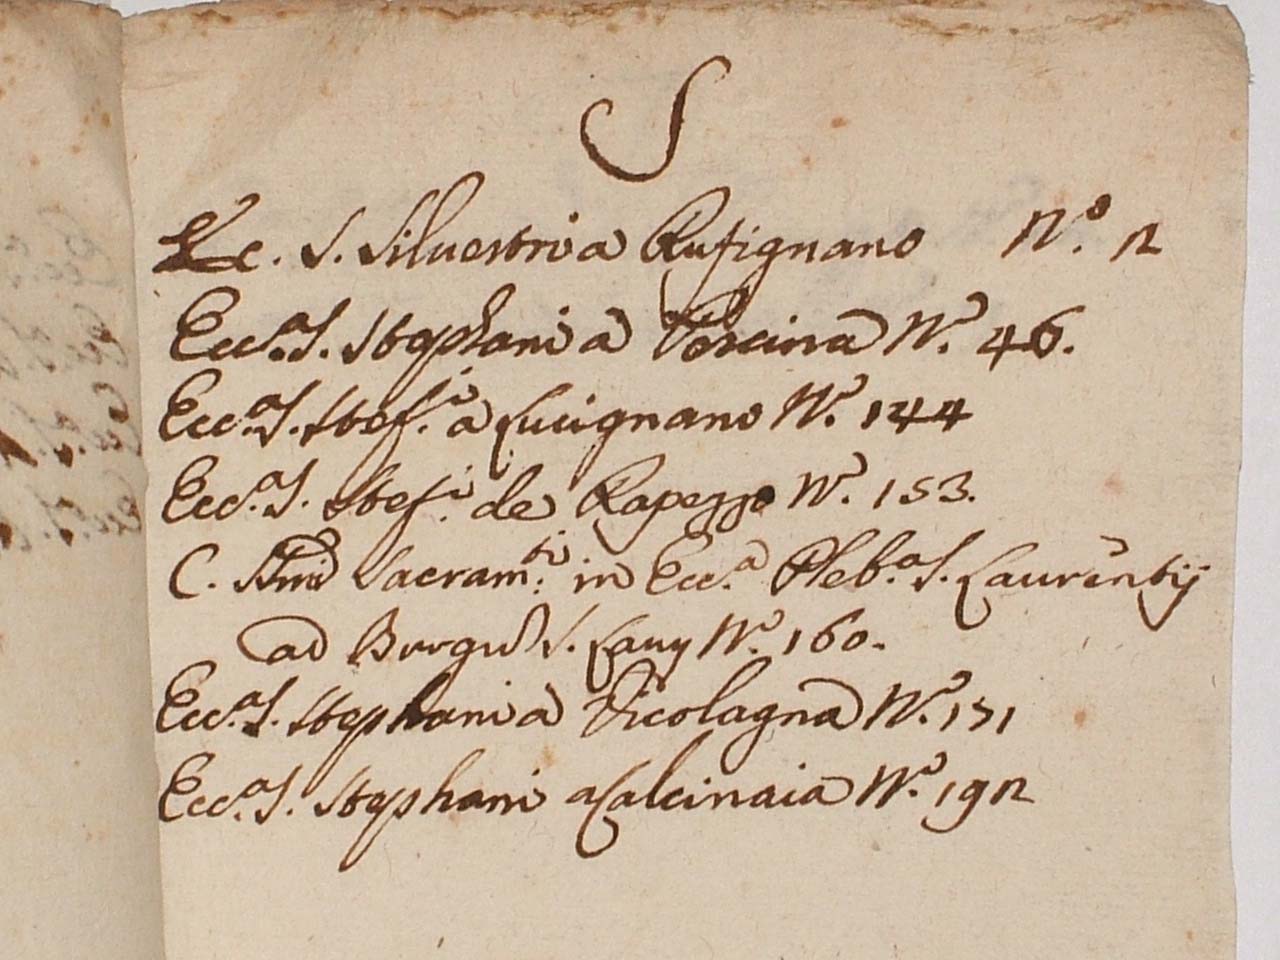 S
Ec. S. Silvestri a Rufignano N.º 2
Ecc.a S. Stephani a Torcina N.º 46.
Ecc.a S. Stef.i a Lucignano N.º 144
Ecc.a S. Stef.i de Rapezzo N.º 153.
C. SSmi Sacram.ti in Ecc.a Pleb.a S. Laurentij
ad Burgu S. Laur N.º 160.
Ecc.a S. Stephani a Vicolagna N.º 171
Ecc.a S. Stephani a Calcinaia N.º 192